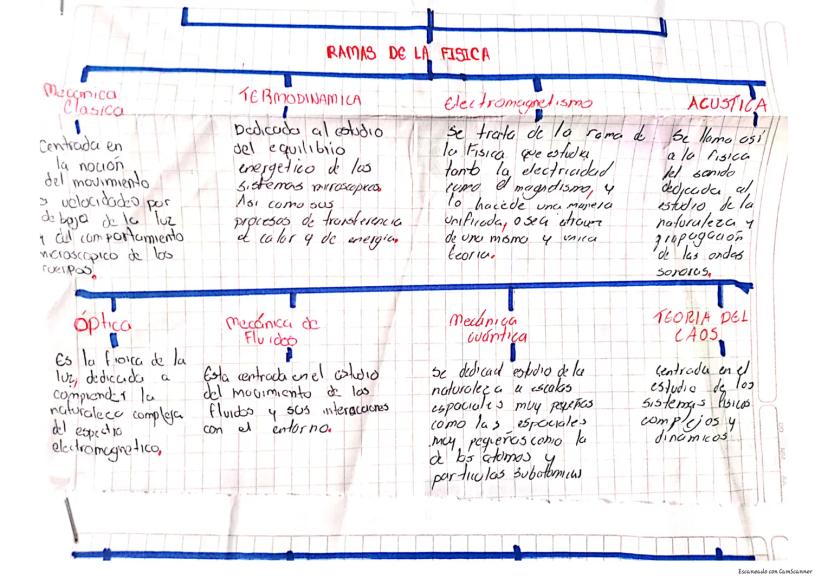 RAMAS DE LA FISICA
Mecánica
Clasica
Centrada en
la noción
del movimiento
velocidades por
debajo de la luz
y del comportamiento
de los
cuerpos.
TERMODINAMICA
Dedicada al estudio
del equilibrio
energetico de los
sistemas
Asi como sus
procesos de transferencia
de calor y de energia.
Electromagnetismo
Se trata de la rama de
la Fisica que estudia
tanto la electricidad
como el magnetismo, y
lo hace de una manera
unificada, o sea
de una misma y unica
teoria.
ACUSTICA
Se llama así
a la Fisica
del sonido
dedicada al
estudio de la
naturaleza y
propagación
de las ondas
sonoras.
Óptica
Es la fisica de la
luz, dedicada a
comprender la
naturaleza compleja
del espectro
electromagnetico,
Mecánica de
Fluidos
Esta centrada en el estudio
del movimiento de los
fluidos y sus interacciones
con el entorno.
Mecánica
Cuántica
se dedica estudio de la
naturaleza a escalas
espaciales muy pequeñas
como las espaciales
muy pequeñas como la
de los átomos y
particulas subatomicas
TEORIA DEL
CAOS
centrada en el
estudio de los
sistemas fisicos
complejos y
dinámicos.
Escaneado con CamScanner